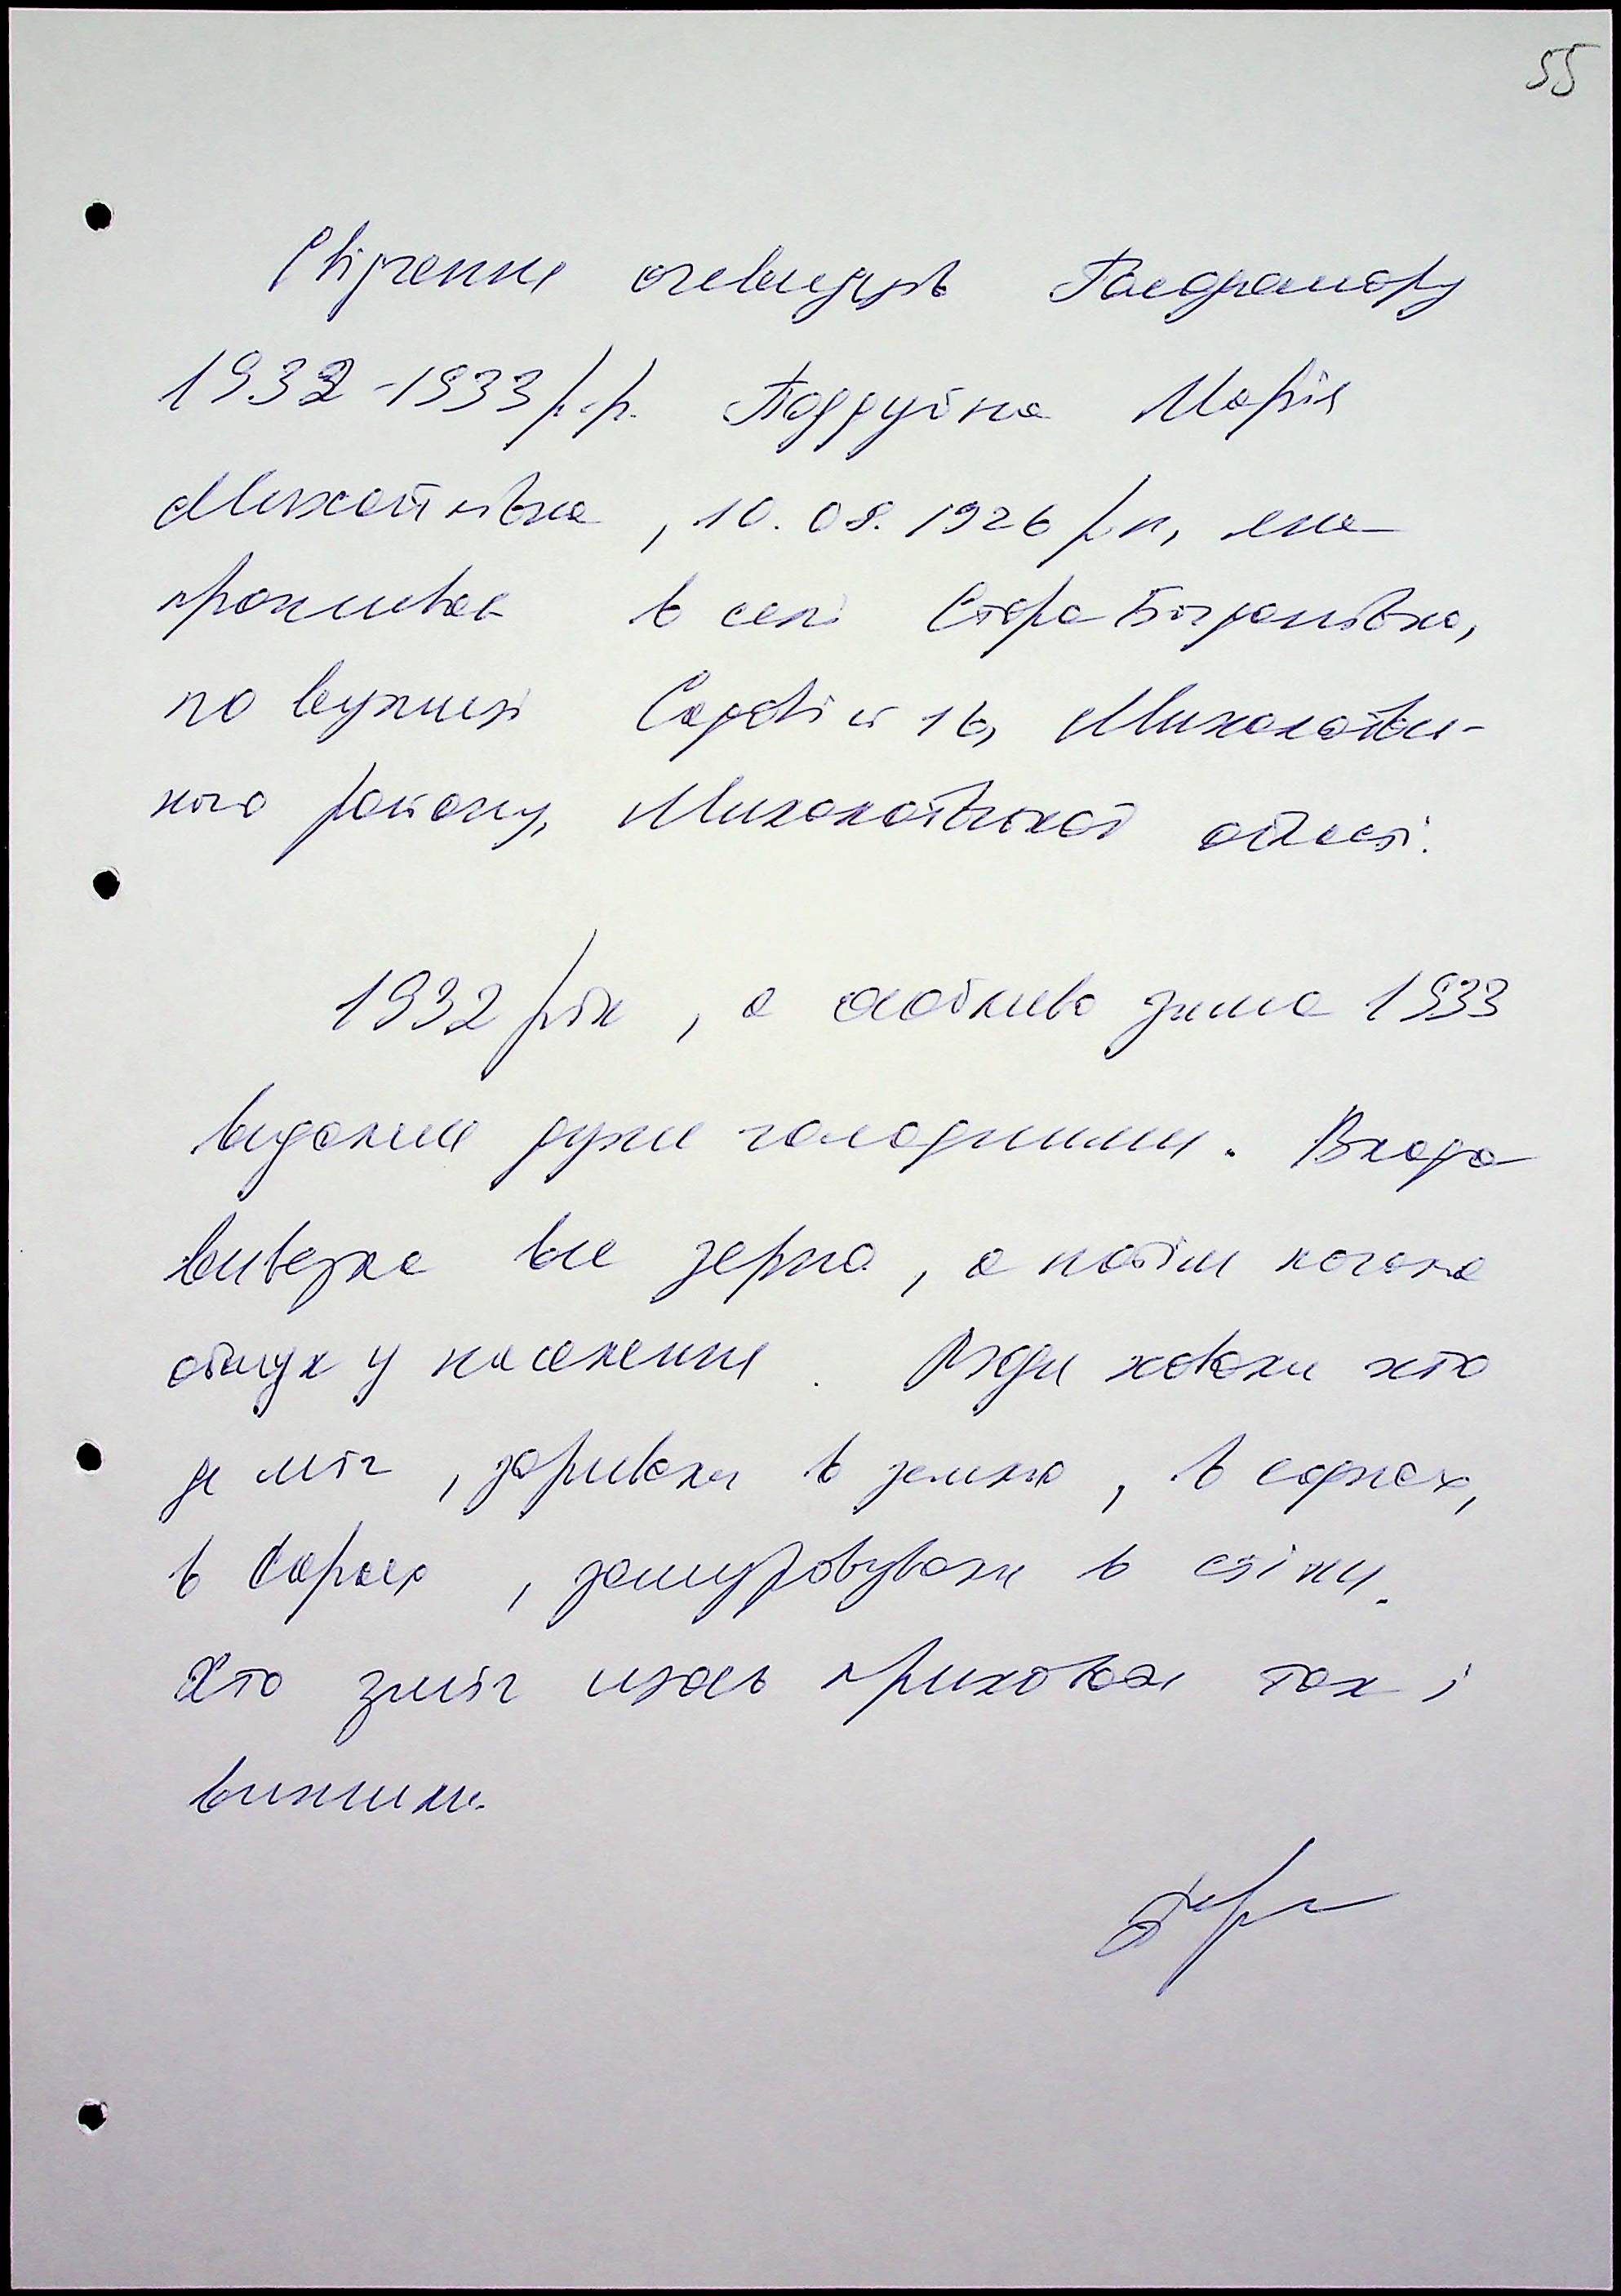 55
Свідчення очевидців Голодомору
1932-1933 р.р. Поддубна Марія
Михайлівна, 10.08.1926 р.н, яка
проживає в селі Стара Богданівка,
по вулиці Садовій 16, Миколаївсь-
кого району, Миколаївської області.
1932 рік, а особливо зима 1933
видались дуже голодними. Влада
вивезла все зерно, а потім почала
обшук у населення. Люди ховали хто
де міг, заривали в землю, в садках,
в сараях, замуровували в стіну.
Хто зміг щось приховати так і
вижили.